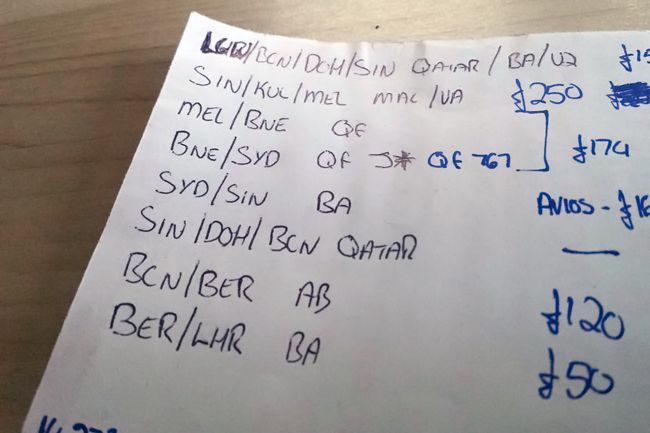 LGW/BCN/DOH/SIN QATAR/BA/U2 £15
SIN/KUL/MEL MAC/VA £250
MEL/BNE QF
BNE/SYD QF J* QF 767 £174
SYD/SIN BA AVIOS - £16
SIN/DOH/BCN QATAR —
BCN/BER AB £120
BER/LHR BA £50